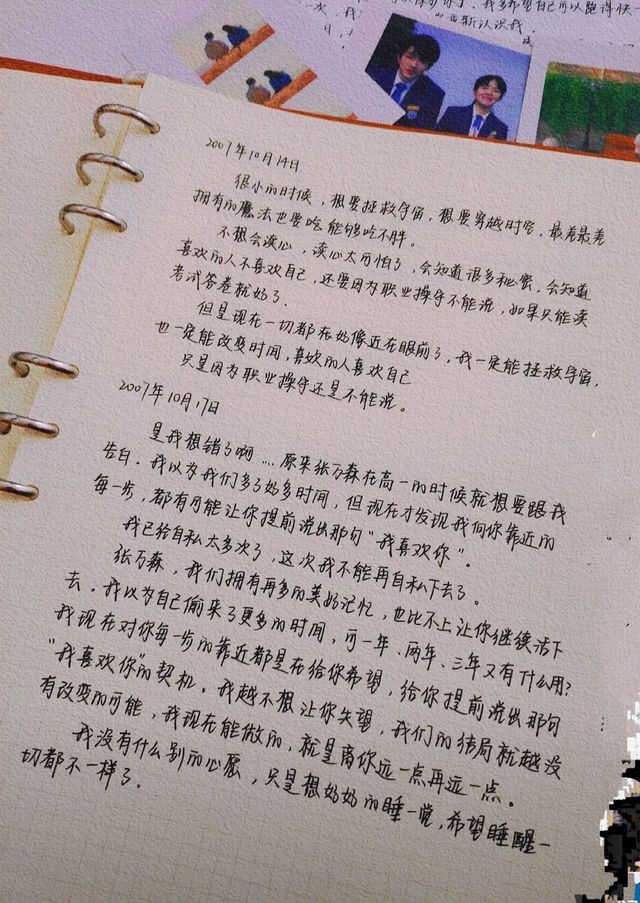 一次，我
新认识我.
2007年10月14日
很小的时候，想要拯救宇宙，想要穿越时空，最差最差
拥有的魔法也要吃能够吃不胖。
不想会读心，读心太可怕了，会知道很多秘密，会知道
喜欢的人不喜欢自己，还要因为职业操守不能说，如果只能读
考试答卷就好了.
但是现在一切都在好像近在眼前了，我一定能拯救宇宙，
也一定能改变时间，喜欢的人喜欢自己
只是因为职业操守还是不能说。
2007年10月17日
是我想错了啊....原来张万森在高一的时候就想要跟我
告白.我以为我们多了好多时间，但现在才发现我向你靠近的
每一步，都有可能让你提前说出那句“我喜欢你”。
我已经自私太多次了，这次我不能再自私下去了。
张万森，我们拥有再多的美好记忆，也比不上让你继续活下
去.我以为自己偷来了更多的时间，可一年、两年、三年又有什么用?
我现在对你每一步的靠近都是在给你希望，给你提前说出那句
“我喜欢你”的契机.我越不想让你失望，我们的结局就越没
有改变的可能，我现在能做的，就是离你远一点再远一点。
我没有什么别的心愿，只是想好好的睡一觉，希望睡醒一
切都不一样了.